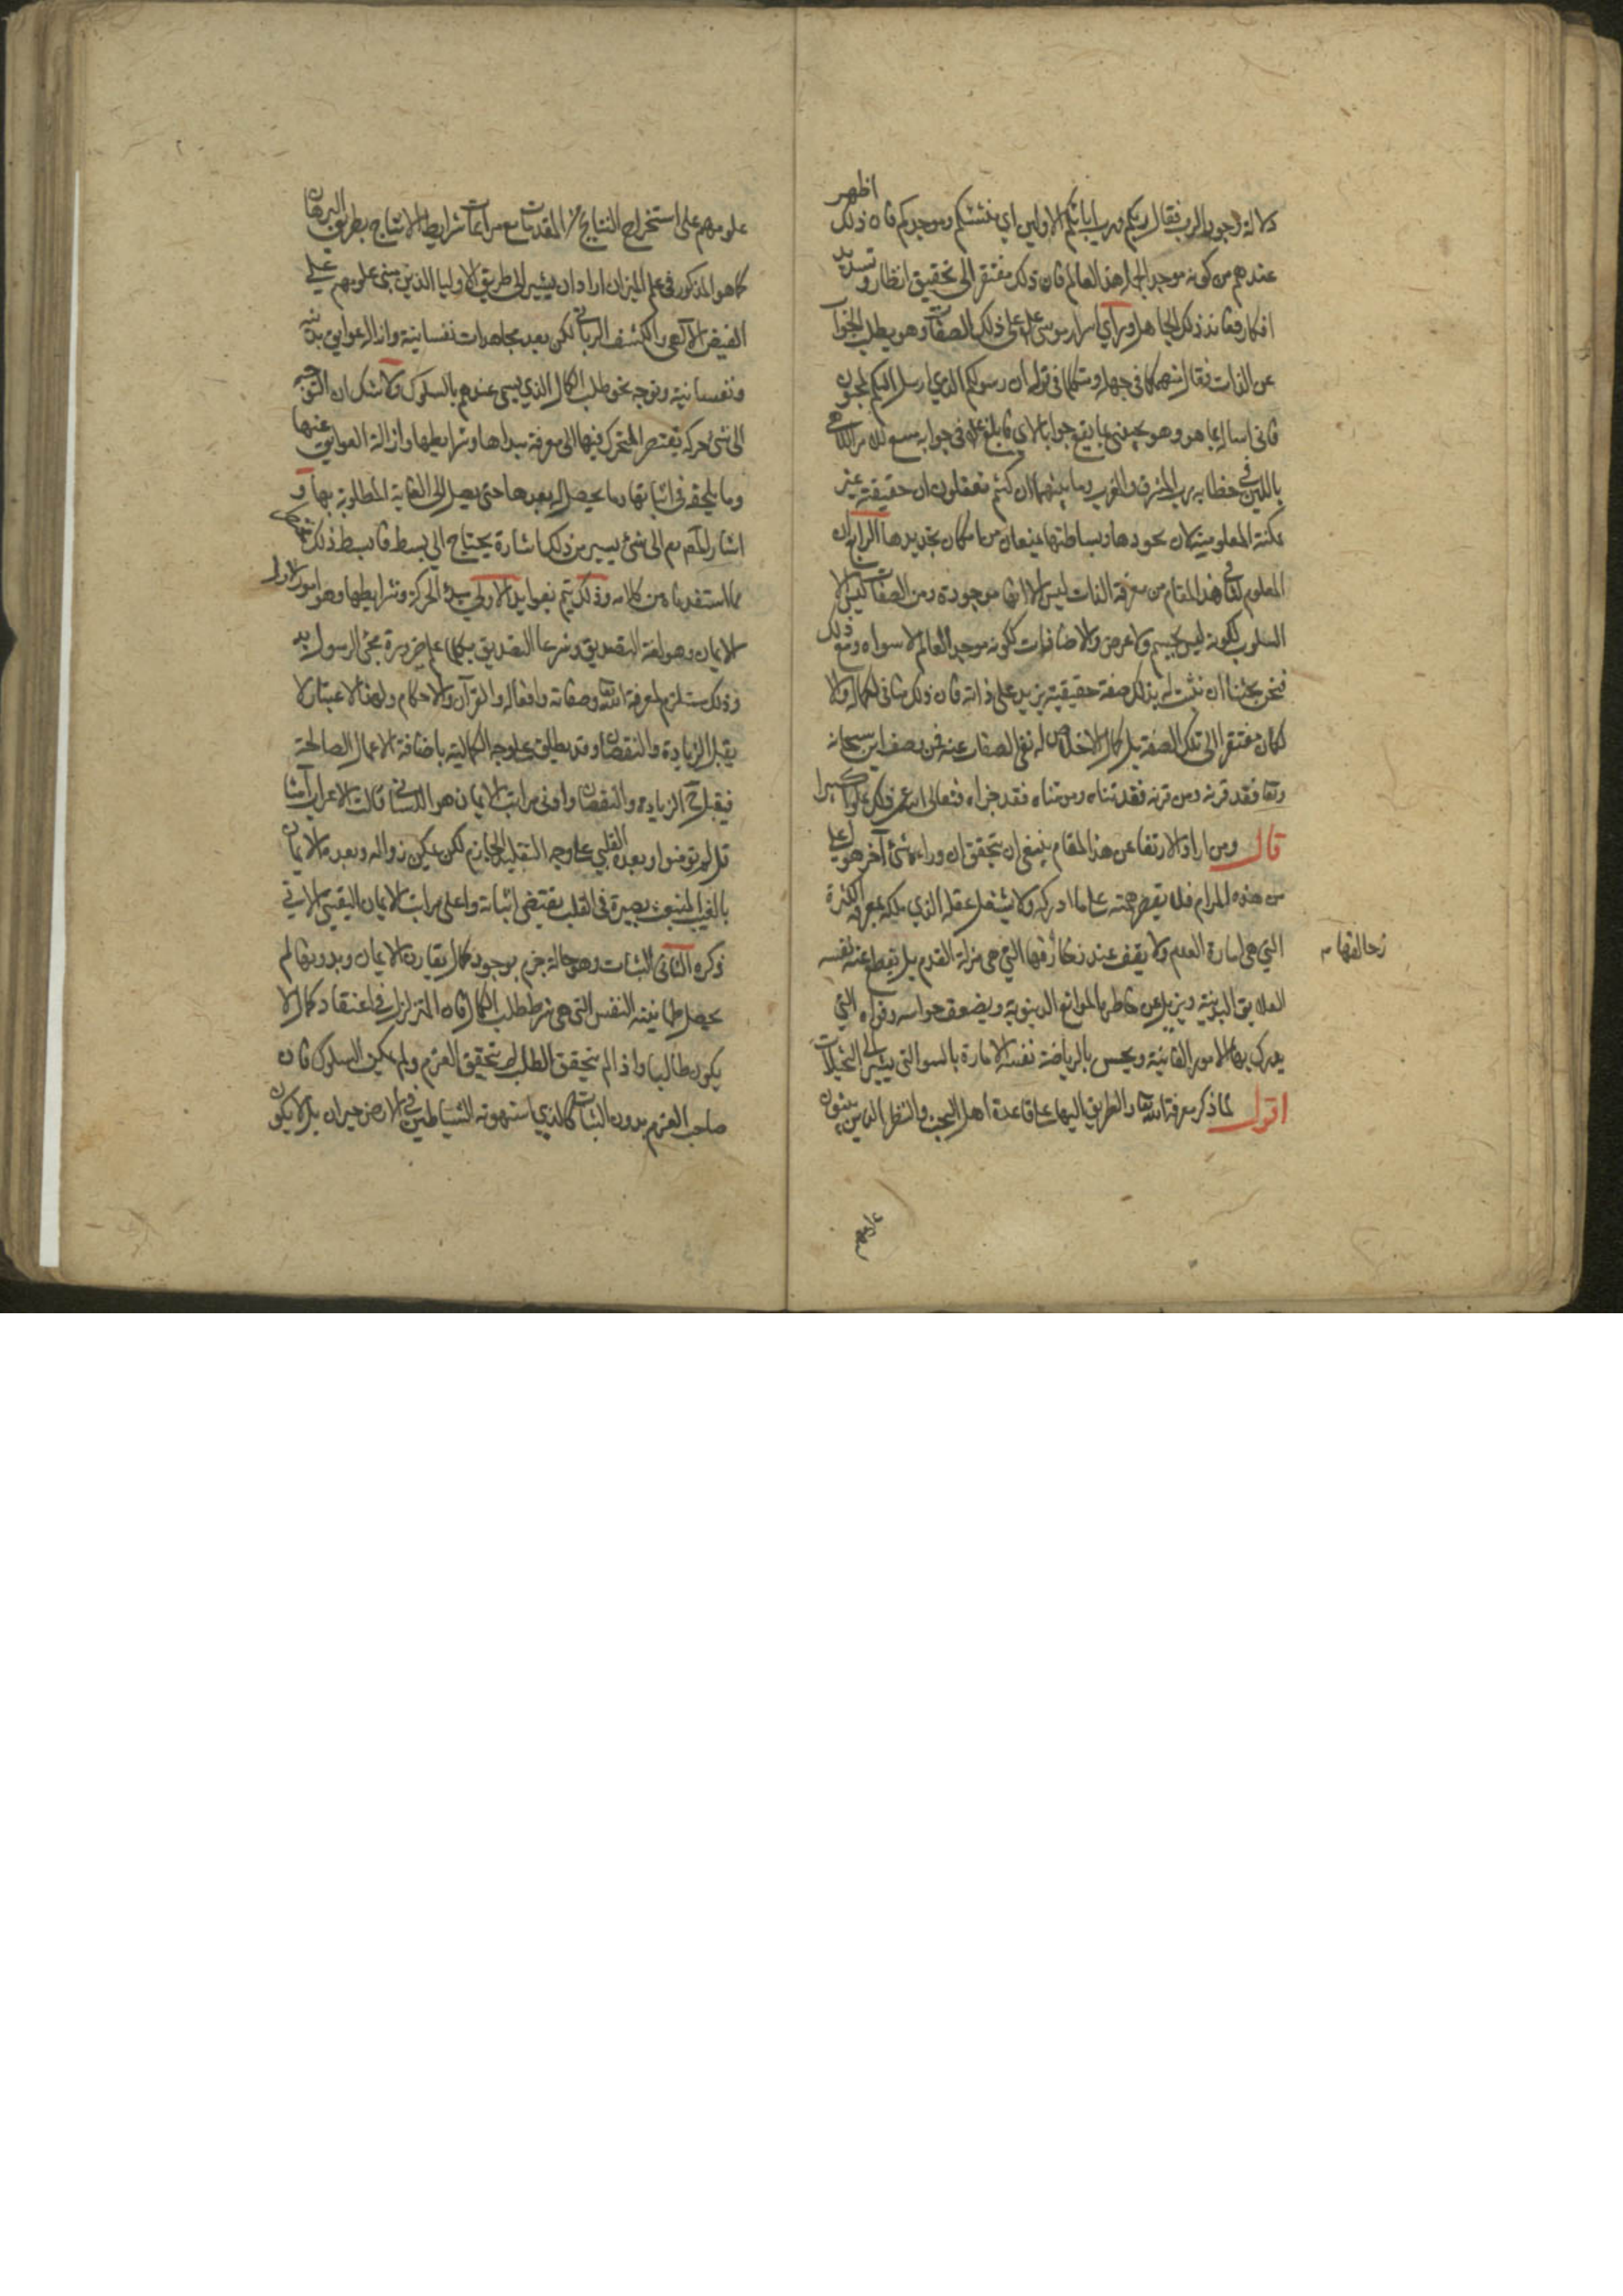 دلالة وجود الرب فقال ربكم ورب ابائكم الاولين اي منشئكم وموجدكم فان ذلك اظهر
عندهم من كونه موجدا لجل هذا العالم فان ذلك مفتقر الى تحقيق انظار وتسديد
افكار فعاند ذلك الجاهل وراي اسرار موسى علم على ذلك الصفات وهو يطلب الجواب
عن الذات فقال منهمكا في جهله ومتكلما في قوله ان رسولكم الذي ارسل اليكم لمجنون
فاني اساله بما هو وهو يجيبني بما يقع جوابا لاي في جوابه
باللين في خطابه برب المشرق والمغرب وما بينهما ان كنتم تعقلون ان حقيقته غير
ممكنة المعلومية لان تجردها وبساطتها يمنعان من امكان تحديدها الرابع ان
المعلوم لنا في هذا المقام من معرفة الذات ليس الا انها موجودة ومن الصفات ليس الا
السلوب ككونه ليس بجسم ولا عرض والاضافات ككونه موجد العالم لا سواه ومع ذلك
فنحن يجننا ان نثبت له بذلك صفة حقيقية يزيد على ذاته فان ذلك مناف لكماله والا
لكان مفتقرا الى تلك الصفة بل كمال الاخلاص له نفي الصفات عنه فمن وصف الله سبحانه
وتعا فقد قرنه ومن قرنه فقد ثناه ومن ثناه فقد جزاه فتعالى الله عن ذلك علوا كبيرا
قال ومن اراد الارتقا عن هذا المقام ينبغي ان يتحقق ان وراءه شئ آخر هو اعلى
من هذه المرام فلا يقصر همته على ما ادركه ولا يشغل عقله الذي ملكه بمعرفة الكثرة
التي هي امارة العدم ولا يقف عند زخارفها التي هي مزلة القدم بل يقطع عنه نفسه
العلايق البدنية ويزيل عن خاطره الموانع الدنيوية ويضعف حواسه وقواه التي
يدرك بها الامور الفانية ويحبس بالرياضة نفسه الامارة بالسوالتي يشير الى التخيلات
اقول لما ذكر معرفة الله تعا والطريق اليها على قاعدة اهل البحث والنظر الذين يبنون
علومهم على استخراج النتايج من المقدمات مع مراعات شرايط الانتاج بطريق البرهان
كما هو المذكور في علم الميزان اراد ان يشير الى طريق الاوليا الذين مبنى علومهم على
الفيض الآلهي والكشف الرباني لكن بعد مجاهدات نفسانية وازالة عوايق بدنية
ونفسانية وتوجه نحو طلب الكمال الذي يسمى عندهم بالسلوك ولا شك ان التوجه
الى شئ حركة يفتقر المتحرك فيها الى معرفة مبداها وشرايطها وازالة العوايق عنها
وما يلحقه في اثنائها وما يحصل له بعدها حتى يصل الى الغاية المطلوبة بها و
اشار المصنف الى شئ يسير من ذلك اشارة يحتاج الى بسط فابسط ذلك
مما استفدناه من كلامه وذلك يتم بفوايد الاولى مبدأ الحركة وشرايطها وهو امور الاول
الايمان وهو لغة التصديق وشرعا التصديق بكلما علم ضرورة مجئ الرسول به
وذلك مستلزم لمعرفة الله وصفاته وافعاله والقرآن والاحكام ولهذا الاعتبار لا
يقبل الزيادة والنقصان وقد يطلق على وجه الكمالية باضافة الاعمال الصالحة
فيقبل ح الزيادة والنقصان وادنى مراتب الايمان هو اللساني قالت الاعراب آمنا
قل لم تومنوا وبعده القلبي على وجه التقليد الجازم لكن يمكن زواله وبعده الايمان
بالغيب المنبعث بصيرة في القلب تقتضي اثباته واعلى مراتب الايمان اليقيني الاتي
ذكره الثاني الثبات وهو حالة جزم بوجود كمال يقارن الايمان وبدونها لم
يحصل طمانينة النفس التي هي شرط طلب الكمال فان المتزلزل في اعتقاد كمال لا
يكون طالبا واذا لم يتحقق الطلب لم يتحقق العزم ولم يمكن السلوك فان
صاحب العزم بدون الثبات كالذي استهوته الشياطين في الارض حيران بل لا يكون